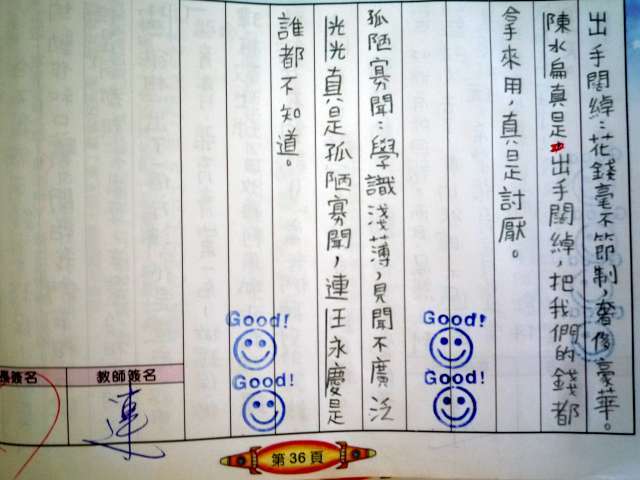 出手闊綽：花錢毫不節制，奢侈豪華。
陳水扁真是出手闊綽，把我們的錢都
拿來用，真是討厭。
孤陋寡聞：學識淺薄，見聞不廣泛
光光真是孤陋寡聞，連王永慶是
誰都不知道。
Good!
Good!
Good!
Good!
教師簽名
連
簽名
第36頁